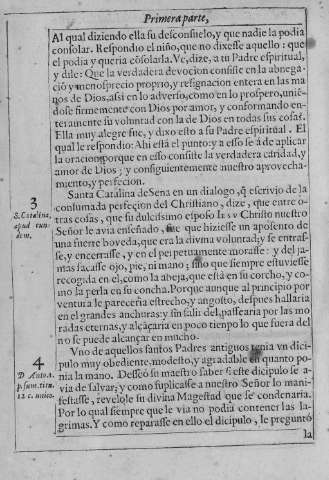 Primera parte,
Al qual diziendo ella su desconsuelo, y que nadie la podia
consolar. Respondio el niño, que no dixesse aquello: que
el podia y queria cõsolarla. Ve, dize, a tu Padre espiritual,
y dile: Que la verdadera devocion consiste en la abnega-
ció y menosprecio proprio, y resignacion entera en las ma
nos de Dios, assi en lo adverso, como en lo prospero, unié-
dose firmemente con Dios por amor, y conformando en-
teramente su voluntad con la de Dios en todas sus cosas.
Ella muy alegre fue, y dixo esto a su Padre espiritual. El
qual le respondio: Ahi está el punto: y a esso se á de aplicar
la oracion, porque en esso consiste la verdadera caridad, y
amor de Dios; y consiguientemente nuestro aprovecha-
miento, y perfecion.
3
S. Catalina,
apud eun-
dem.
Santa Catalina de Sena en un dialogo, q̃ escrivio de la
consumada perfecion del Christiano, dize, que entre o-
tras cosas, que su dulcissimo esposo Iesv Christo nuestro
Señor le avia enseñado, fue que hiziesse un aposento de
una fuerte boveda, que era la divina voluntad, y se entras-
se, y encerrasse, y en el perpetuamente morasse: y del ja-
mas sacasse ojo, pie, ni mano; sino que siempre estuviesse
recogida en el, como la abeja, que está en su corcho, y co-
mo la perla en su concha. Porque aunque al principio por
ventura le pareceria estrecho, y angosto, despues hallaria
en el grandes anchuras: y sin salir del, passearia por las mo
radas eternas, y alcãçaria en poco tiempo lo que fuera del
no se puede alcançar en mucho.
4
D. Anto. 2.
p. sum. titu.
12 c. unico.
Uno de aquellos santos Padres antiguos tenia un dici-
pulo muy obediente, modesto, y agradable en quanto po-
nia la mano. Desseó su maestro saber si este dicipulo se a-
via de salvar; y como suplicasse a nuestro Señor lo mani-
festasse, revelole su divina Magestad que se condenaria.
Por lo qual siempre que le via no podia contener las la-
grimas. Y como reparasse en ello el dicipulo, le preguntó
la